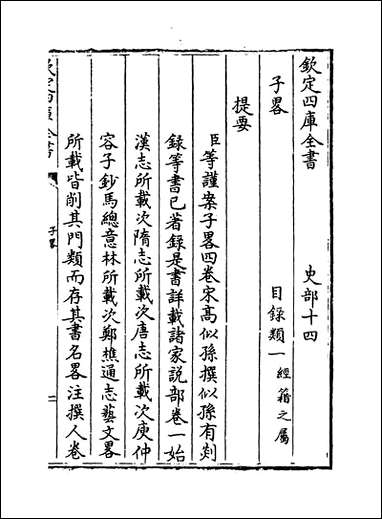 欽定四庫全書　史部十四
子畧　目録類一經籍之屬
提要
臣等謹案子畧四卷宋髙似孫撰似孫有剡
録等書已著録是書詳載諸家説部卷一始
漢志所載次隋志所載次唐志所載次庾仲
容子鈔馬總意林所載次鄭樵通志藝文畧
所載皆削其門類而存其書名畧注撰人卷
欽定四庫全書
子畧